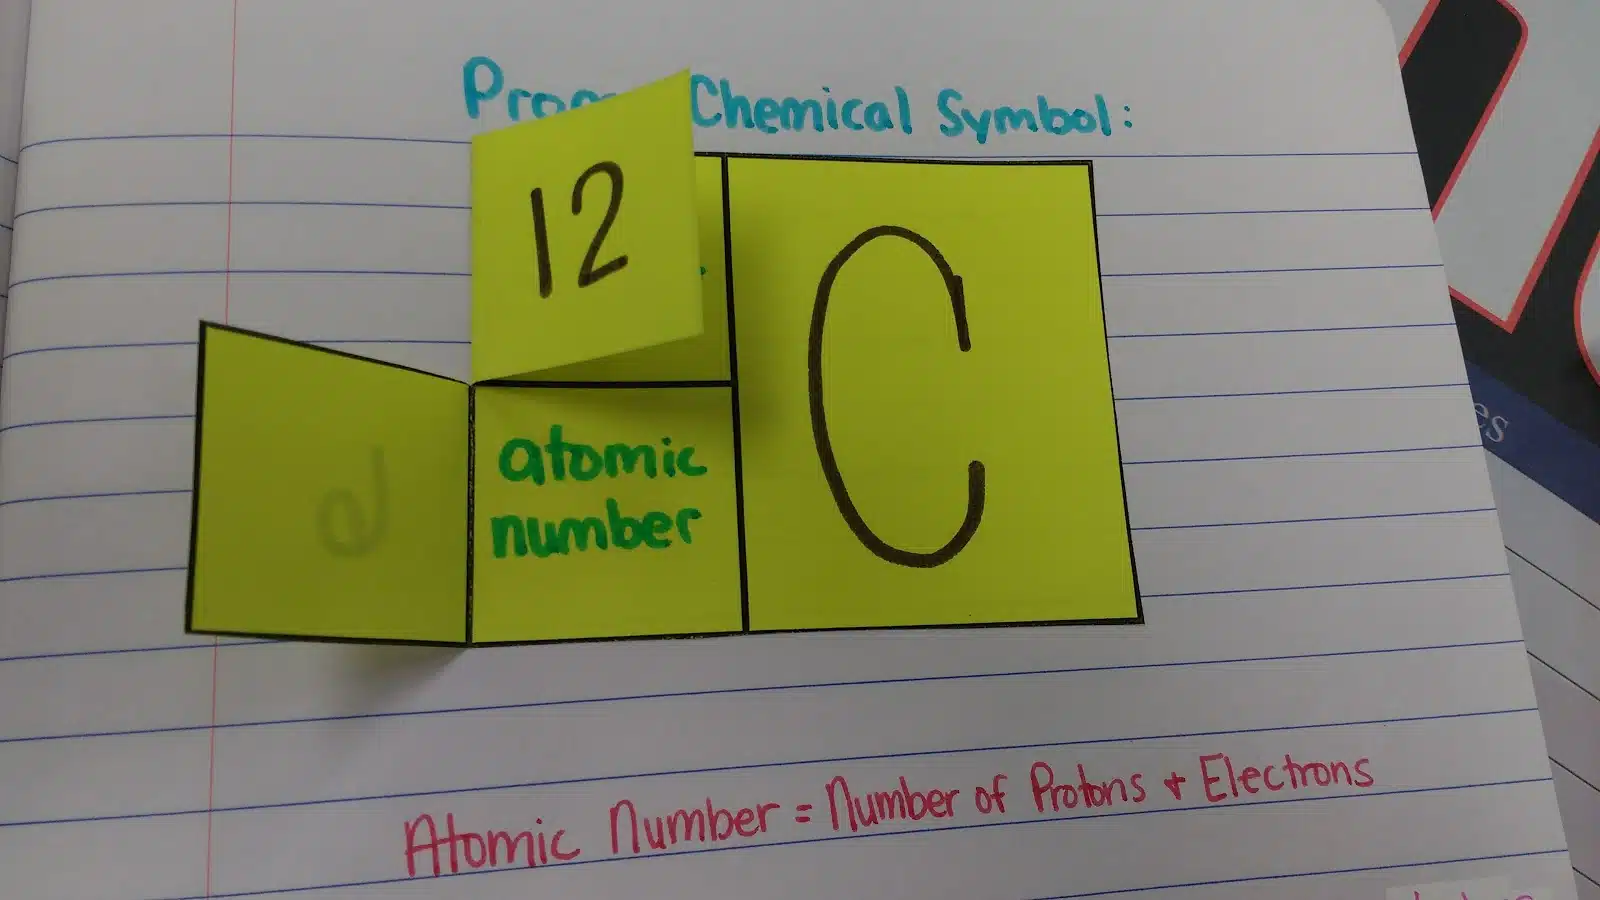 Chemical Symbol:
12
C
atomic
number
Atomic Number = Number of Protons + Electrons